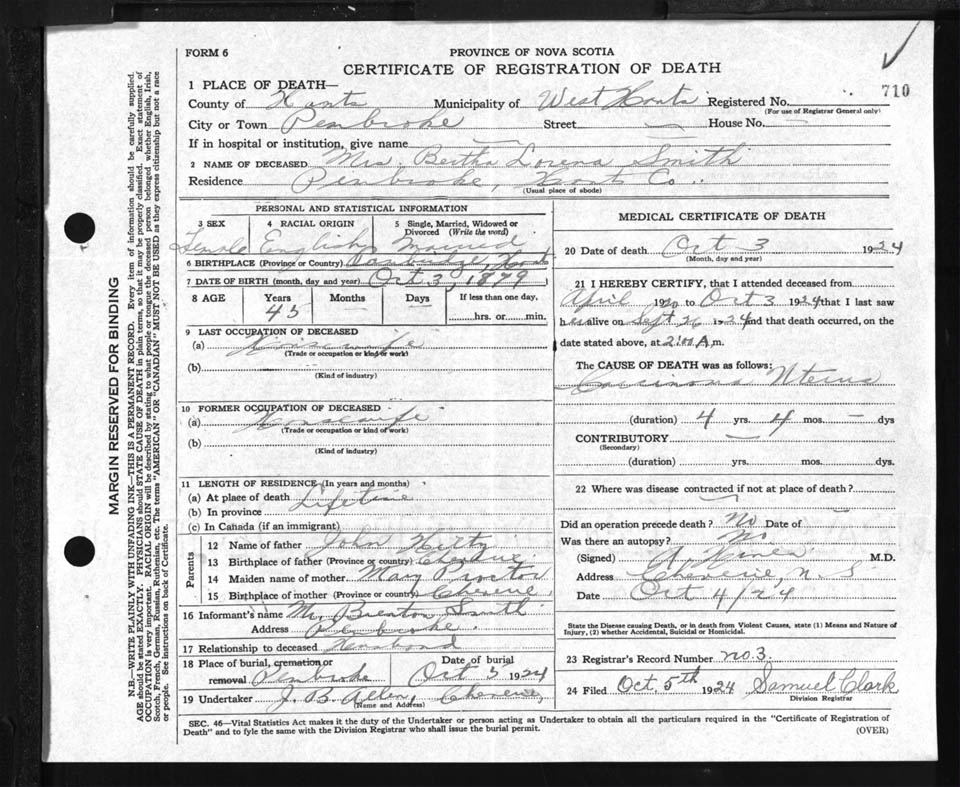 710
FORM 6
PROVINCE OF NOVA SCOTIA
CERTIFICATE OF REGISTRATION OF DEATH
1 PLACE OF DEATH—
County of Hants Municipality of West Hants Registered No.
(For use of Registrar General only)
City or Town Pembroke Street — House No. —
If in hospital or institution, give name —
2 NAME OF DECEASED Mrs. Bertha Lorena Smith
Residence Pembroke, Hants Co.
(Usual place of abode)
PERSONAL AND STATISTICAL INFORMATION
3 SEX 4 RACIAL ORIGIN 5 Single, Married, Widowed or Divorced (Write the word)
Female English Married
6 BIRTHPLACE (Province or Country) Hants
7 DATE OF BIRTH (month, day and year) Oct 3, 1879
8 AGE Years Months Days If less than one day,
45 — — hrs. or min.
9 LAST OCCUPATION OF DECEASED
(a) Housewife
(Trade or occupation or kind or work)
(b)
(Kind of industry)
10 FORMER OCCUPATION OF DECEASED
(a) Housewife
(Trade or occupation or kind of work)
(b)
(Kind of industry)
11 LENGTH OF RESIDENCE (In years and months)
(a) At place of death Lifetime
(b) In province
(c) In Canada (if an immigrant)
Parents
12 Name of father John
13 Birthplace of father (Province or country) Cheverie
14 Maiden name of mother Mary Proctor
15 Birthplace of mother (Province or country) Cheverie
16 Informant's name Mr. Brenton Smith
Address Pembroke
17 Relationship to deceased Husband
18 Place of burial, cremation or removal Pembroke Date of burial Oct 5 1924
19 Undertaker J. B. Allen, Cheverie,
(Name and Address)
MEDICAL CERTIFICATE OF DEATH
20 Date of death Oct 3 1924
(Month, day and year)
21 I HEREBY CERTIFY, that I attended deceased from
April 1920 to Oct 3 1924 that I last saw
her alive on Sept 26 1924 and that death occurred, on the
date stated above, at 2:00 A.m.
The CAUSE OF DEATH was as follows:
Carcinoma Uterus
(duration) 4 yrs. 4 mos. — dys
CONTRIBUTORY —
(Secondary)
(duration) yrs. mos. dys.
22 Where was disease contracted if not at place of death?
Did an operation precede death? No Date of —
Was there an autopsy? No
(Signed) A. M.D.
Address Cheverie, N.S
Date Oct 4/24
State the Disease causing Death, or in death from Violent Causes, state (1) Means and Nature of
Injury, (2) whether Accidental, Suicidal or Homicidal.
23 Registrar's Record Number no. 3.
24 Filed Oct. 5th 1924 Samuel Clark
Division Registrar
SEC. 46—Vital Statistics Act makes it the duty of the Undertaker or person acting as Undertaker to obtain all the particulars required in the "Certificate of Registration of
Death" and to fyle the same with the Division Registrar who shall issue the burial permit.
(OVER)
MARGIN RESERVED FOR BINDING
N.B.—WRITE PLAINLY WITH UNFADING INK—THIS IS A PERMANENT RECORD. Every item of information should be carefully supplied.
AGE should be stated EXACTLY. PHYSICIANS should STATE CAUSE OF DEATH in plain terms, so that it may be properly classified. Exact statement of
OCCUPATION is very important. RACIAL ORIGIN will be described by stating to what people or tongue the deceased person belonged whether English, Irish,
Scotch, French, German, Russian, Ruthenian, etc. The terms "AMERICAN" OR "CANADIAN" MUST NOT BE USED as they express citizenship but not a race
or people. See instructions on back of Certificate.